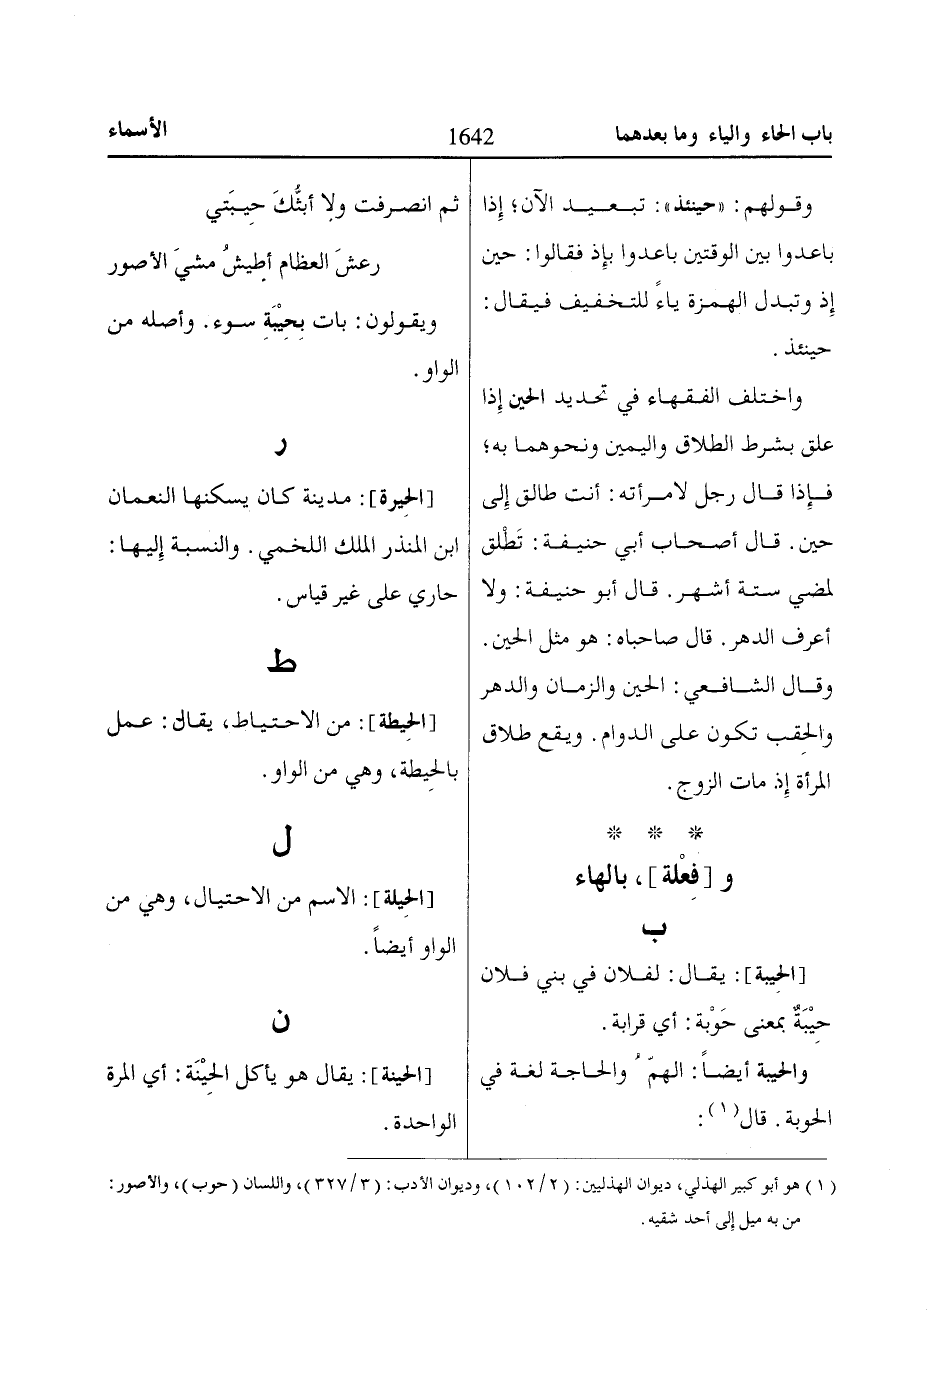 باب الحاء والياء وما بعدهما
1642
الأسماء
وقولهم: «حينئذ»: تبعيد الآن؛ إذا
باعدوا بين الوقتين باعدوا بإذ فقالوا: حين
إذ وتبدل الهمزة ياءً للتخفيف فيقال:
حينئذ.
واختلف الفقهاء في تحديد الحين إذا
علق بشرط الطلاق واليمين ونحوهما به؛
فإذا قال رجل لامرأته: أنت طالق إلى
حين. قال أصحاب أبي حنيفة: تَطْلق
لمضي ستة أشهر. قال أبو حنيفة: ولا
أعرف الدهر. قال صاحباه: هو مثل الحين.
وقال الشافعي: الحين والزمان والدهر
والحِقب تكون على الدوام. ويقع طلاق
المرأة إذ مات الزوج.
* * *
و [فِعْلة]، بالهاء
ب
[الحِيبة]: يقال: لفلان في بني فلان
حِيْبَةٌ بمعنى حَوْبة: أي قرابة.
والحِيبة أيضاً: الهمّ ُ والحاجة لغة في
الحوبة. قال(١):
ثم انصرفت ولا أبثُّكَ حِيبَتي
رعشَ العظام أطيشُ مشيَ الأصور
ويقولون: بات بِحِيْبَة سوء. وأصله من
الواو.
ر
[الحِيرة]: مدينة كان يسكنها النعمان
ابن المنذر الملك اللخمي. والنسبة إليها:
حاري على غير قياس.
ط
[الحِيطة]: من الاحتياط، يقال: عمل
بالحِيطة، وهي من الواو.
ل
[الحِيلة]: الاسم من الاحتيال، وهي من
الواو أيضاً.
ن
[الحِينة]: يقال هو يأكل الحِيْنَة: أي المرة
الواحدة.
(١) هو أبو كبير الهذلي، ديوان الهذليين: (١٠٢/٢)، وديوان الأدب: (٣٢٧/٣)، واللسان (حوب)، والأصور:
من به ميل إلى أحد شقيه.